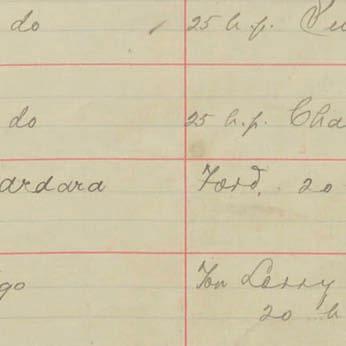 do 25 h.p.
do 25 h.p. Cha
ardara Ford. 20
go Ton Lorry
20 h